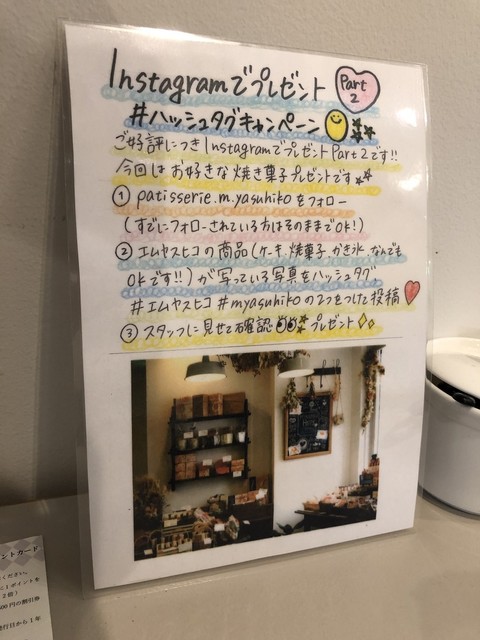 Instagramでプレゼント Part 2
#ハッシュタグキャンペーン
ご好評につきInstagramでプレゼントPart2です!!
今回はお好きな焼き菓子プレゼントです
① patisserie.m.yasuhikoをフォロー
(すでにフォローされている方はそのままでOK!)
② エムヤスヒコの商品(ケーキ.焼菓子.かき氷.なんでも
OKです!!)が写っている写真をハッシュタグ
#エムヤスヒコ #myasuhikoの2つをつけて投稿
③ スタッフに見せて確認 プレゼント
ントカード
ください。
に1ポイントを
2倍)
00円の割引券
発行日から1年